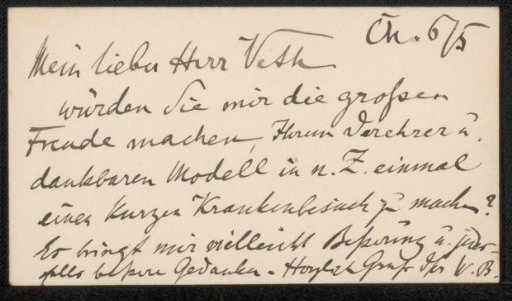 Ch. 6/5
Mein lieber Herr Veth
würden Sie mir die großen
Freude machen, Ihrem Verehrer u.
dankbaren Modell in n. Z. einmal
einen kurzen Krankenbesuch zu machen?
Es bringt mir vielleicht Besserung u. jeden-
falls bessere Gedanken - Herzlich Gruß Ihr W. B.